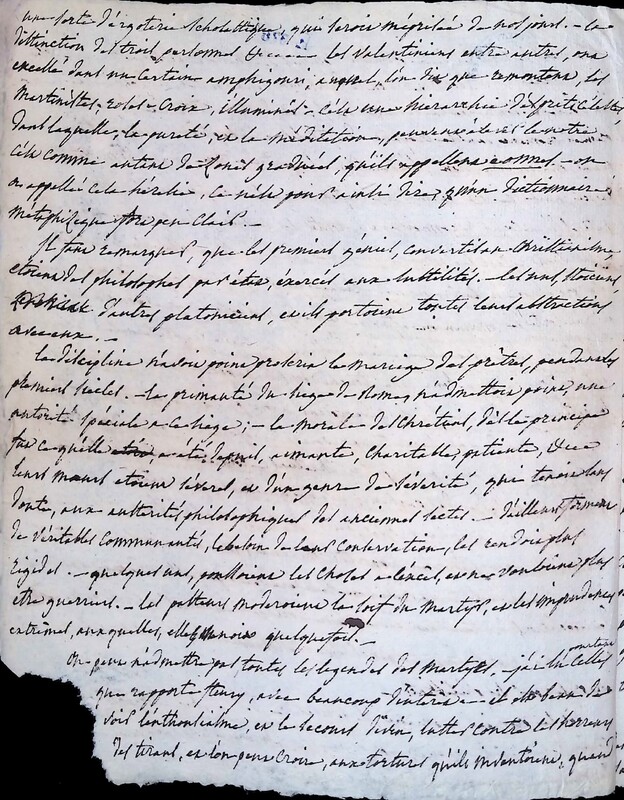 une sorte d'ergoterie scholastique, qui seroit méprisée de nos jours. - la
distinction des trois personnes &c - les valentiniens entre autres, ont
excellé dans un certain amphigouri auquel l'on dit que remontent, les
Martinistes, roses-Croix, illuminés - c'est une hierarchie d'esprits celestes,
dans laquelle, la pureté, et la méditation, peuvent élever le notre
c'est comme autant de Zones graduées, qu'ils appellent eonnes. - on
a appellé cela heresie, ce n'est pour ainsi dire, qu'un dictionnaire
métaphizique peu clair. -
Il faut remarquer, que les premiers génies, convertis au Christianisme,
étoient des philosophes exercés aux subtilités. - les uns, stoiciens,
d'autres platoniciens, et ils portoient toutes leurs abstractions
avec eux. -
la discipline n'avoit point proscrit le mariage des prêtres, pendant les
premiers siecles. - la primauté du siege de Rome, n'admettoit point, une
autorité spéciale a ce siege; - la morale des Chrétiens, dès le principe
fut ce qu'elle a été depuis, aimante, charitable, patiente, &c
leurs moeurs étoient séveres, et d'un genre de sévérité, qui tenoit sans
doute, aux austerités philosophiques des anciennes sectes. - d'ailleurs formant
de véritables communautés, le besoin de leur conservation, les rendoit plus
rigides. - quelques uns, poussoient les choses a l'excès, et ne vouloient plus
etre guerriers. - les pasteurs moderoient la soif du Martyre, et les imprudences
extrêmes, auxquelles, elle quelquefois. -
On peut n'admettre pas toutes les legendes des Martyrs. - j'ai lu pourtant celles
que rapporte fleury, avec beaucoup d'interet - il est beau de
voir l'enthousiasme, et le secours divin, lutter contre les fureurs
des tirans, et l'on peut croire, aux tortures qu'ils inventoient, quand